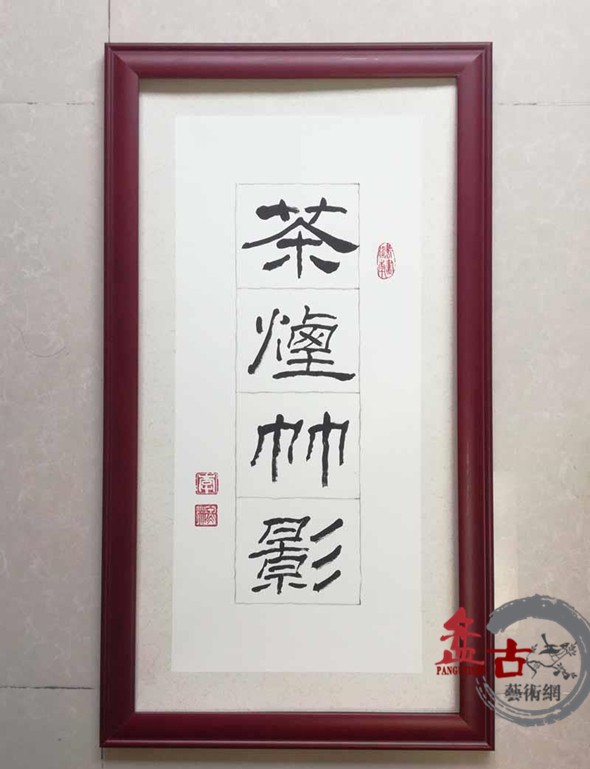 茶
煙
竹
影
盘古
PANGU
藝術網